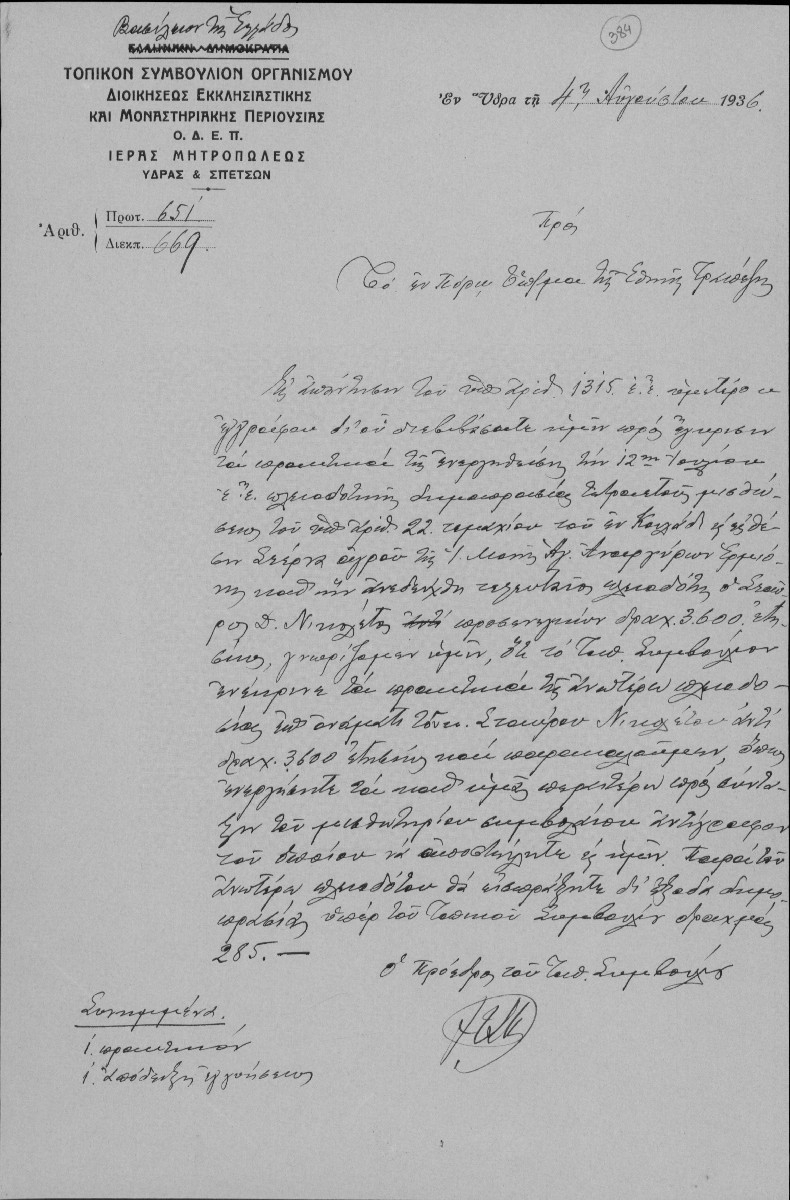 Βασίλειον τῆς Ἑλλάδος
384
ΕΛΛΗΝΙΚΗ ΔΗΜΟΚΡΑΤΙΑ
ΤΟΠΙΚΟΝ ΣΥΜΒΟΥΛΙΟΝ ΟΡΓΑΝΙΣΜΟΥ
ΔΙΟΙΚΗΣΕΩΣ ΕΚΚΛΗΣΙΑΣΤΙΚΗΣ
ΚΑΙ ΜΟΝΑΣΤΗΡΙΑΚΗΣ ΠΕΡΙΟΥΣΙΑΣ
Ο. Δ. Ε. Π.
ΙΕΡΑΣ ΜΗΤΡΟΠΩΛΕΩΣ
ΥΔΡΑΣ & ΣΠΕΤΣΩΝ
Ἐν Ὕδρᾳ τῇ 4ῃ Αὐγούστου 1936.
Ἀριθ. Πρωτ. 651
Διεκπ. 669.
Πρός
Τό ἐν Πόρῳ τῆς Ἐθνικῆς Τραπέζης
Εἰς ἀπάντησιν τοῦ ὑπ' ἀριθ. 1315 ἐ.ἔ. ὑμετέρου
ἐγγράφου δι' οὗ διεβιβάσατε ἡμῖν πρός ἔγκρισιν
τά πρακτικά τῆς ἐνεργηθείσης τήν 12ην Ἰουλίου
ἐ.ἔ. πλειοδοτικῆς δημοπρασίας τετραετοῦς μισθώ-
σεως τοῦ ὑπ' ἀριθ. 22 τεμαχίου τοῦ ἐν Κοιλάδι εἰς θέ-
σιν ἀγροῦ τῆς Ἱ. Μονῆς Ἁγ. Ἀναργύρων Ἑρμιό-
νης καθ' ἥν ἀνεδείχθη τελευταῖος πλειοδότης ὁ Σταῦ-
ρος Δ. Νικολέτος ἀντί προσενεγκών δραχ. 3.600 ἐτη-
σίως, γνωρίζομεν ὑμῖν, ὅτι τό Τοπ. Συμβούλιον
ἐνέκρινε τά πρακτικά τῆς ἀνωτέρω πλειοδο-
σίας ἐπ' ὀνόματι τοῦ κ. Σταύρου Νικολέτου ἀντί
δραχ. 3.600 ἐτησίως καί παρακαλοῦμεν, ὅπως
ἐνεργήσητε τά καθ' ὑμᾶς περαιτέρω πρός σύντα-
ξιν τοῦ μισθωτηρίου συμβολαίου ἀντίγραφον
τοῦ ὁποίου νά ἀποστείλητε εἰς ἡμᾶς. Παρά τοῦ
ἀνωτέρω πλειοδότου θά εἰσπράξητε δι' ἔξοδα δημο-
πρασίας ὑπέρ τοῦ Τοπικοῦ Συμβουλίου δραχμάς
285.—
Ὁ Πρόεδρος τοῦ Τοπ. Συμβουλίου
Συνημμένα.
1. πρακτικόν
1. ἀπόδειξις ἐγγυήσεως